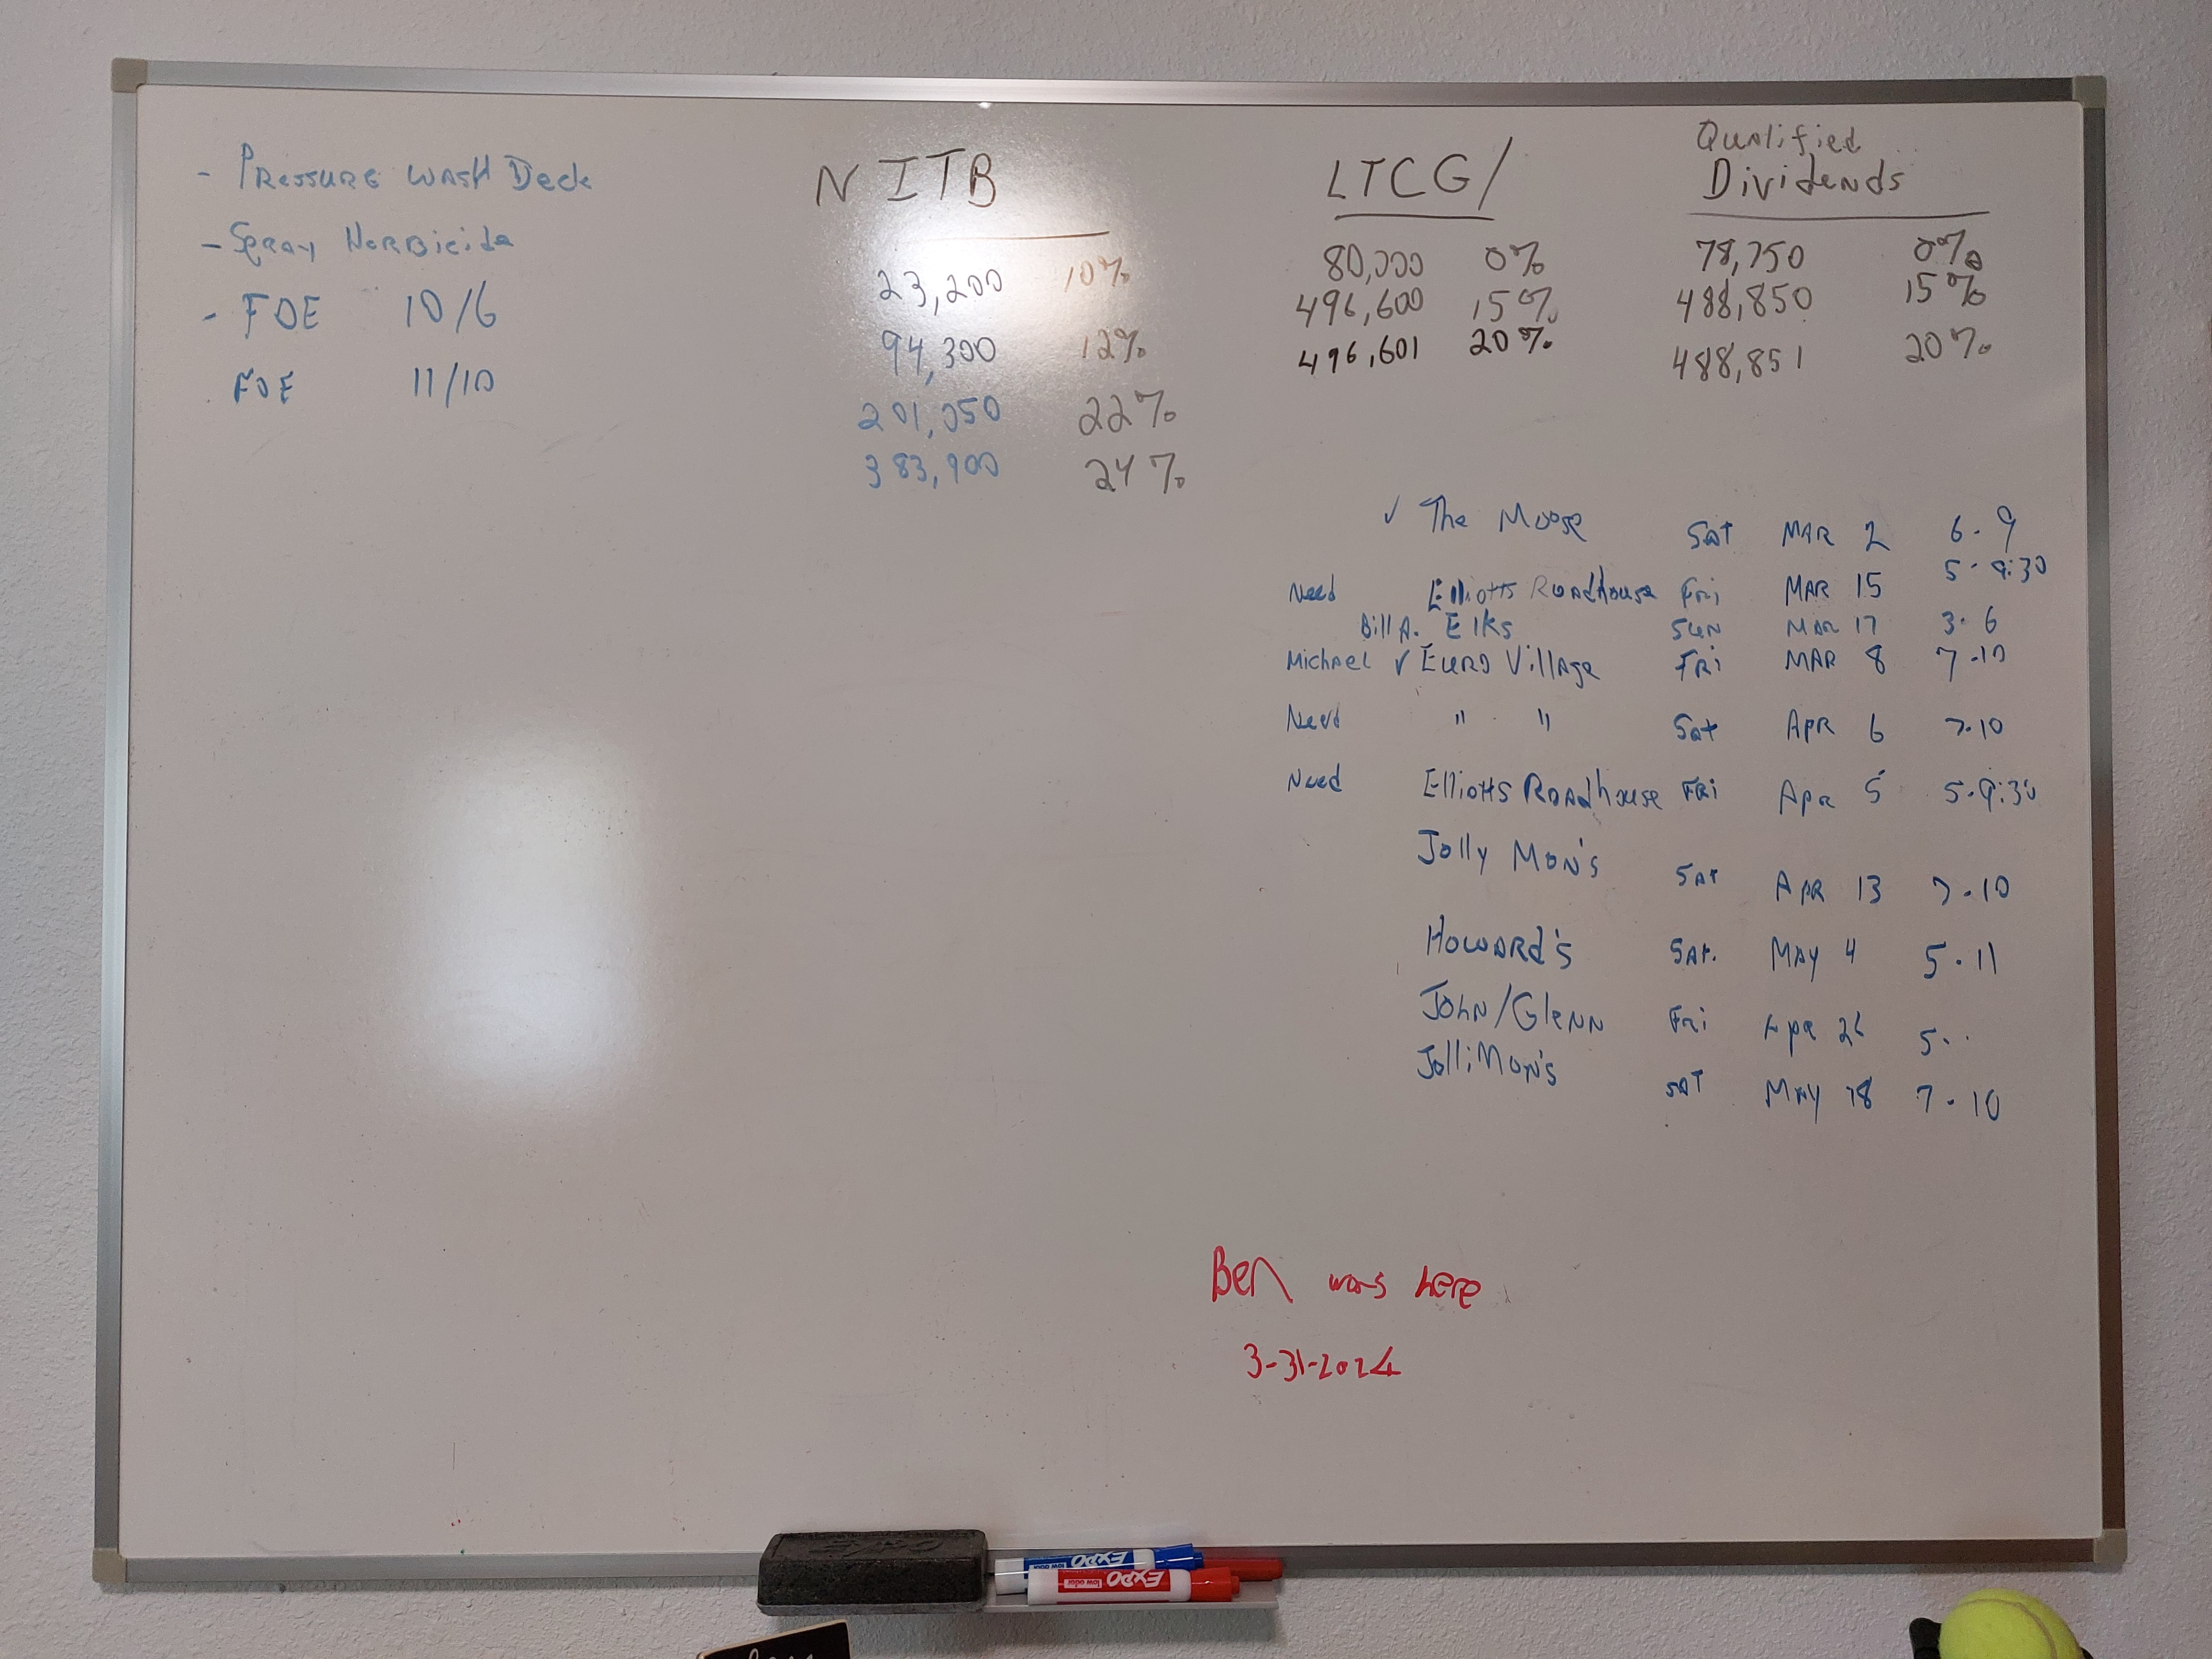 - Pressure Wash Deck
- Spray Herbicide
- FOE 10/6
FOE 11/10
N ITB
23,200 10%
94,300 12%
201,050 22%
383,900 24%
LTCG/
80,000 0%
496,600 15%
496,601 20%
Qualified
Dividends
78,750 0%
488,850 15%
488,851 20%
✓ The Moose Sat MAR 2 6-9
Need Elliotts Roadhouse Fri MAR 15 5-9:30
Bill A. Elks Sun MAR 17 3-6
Michael ✓ Euro Village Fri MAR 8 7-10
Need " " Sat Apr 6 7-10
Need Elliotts Roadhouse Fri Apr 5 5-9:30
Jolly Mon's Sat Apr 13 7-10
Howard's Sat. May 4 5-11
John/Glenn Fri Apr 26 5-
Jolli Mon's Sat May 18 7-10
Ben was here
3-31-2024
EXPO
low odor
EXPO
low odor